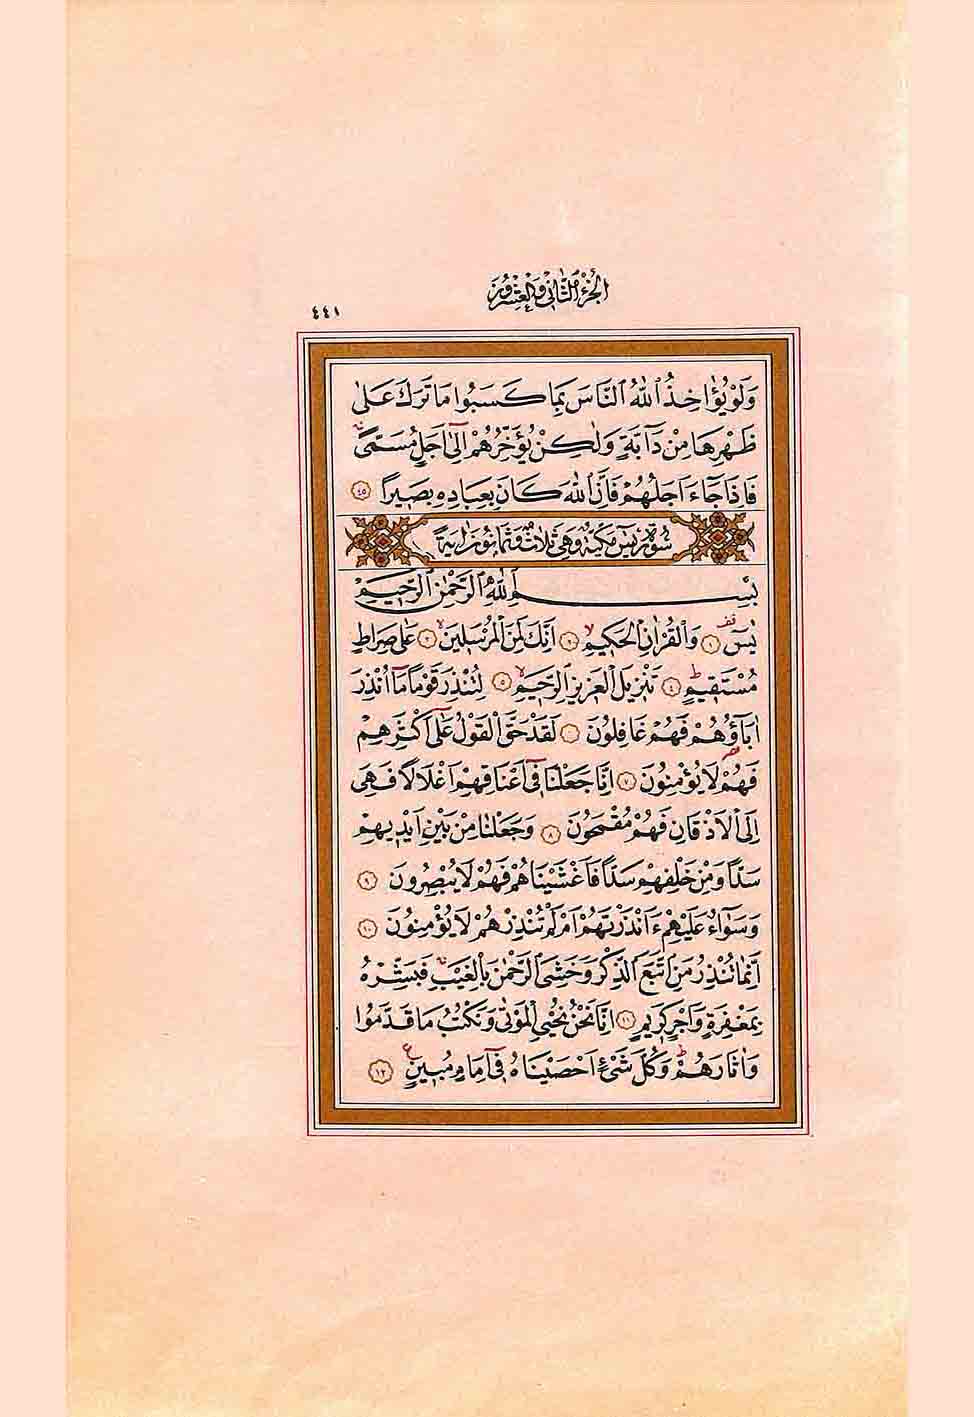 الجزء الثاني والعشرون
٤٤١
وَلَوْ يُؤَاخِذُ اللّٰهُ النَّاسَ بِمَا كَسَبُوا مَا تَرَكَ عَلٰى
ظَهْرِهَا مِنْ دَٓابَّةٍ وَلٰكِنْ يُؤَخِّرُهُمْ اِلٰٓى اَجَلٍ مُسَمًّىۚ
فَاِذَا جَٓاءَ اَجَلُهُمْ فَاِنَّ اللّٰهَ كَانَ بِعِبَادِهِ بَصِيرًا ٤٥
سُورَةُ يٰسٓ مَكِّيَّةٌ وَهِيَ ثَلَاثٌ وَثَمَانُونَ اٰيَةً
بِسْمِ اللّٰهِ الرَّحْمٰنِ الرَّحِيمِ
يٰسٓ ١ وَالْقُرْاٰنِ الْحَكِيمِۙ ٢ اِنَّكَ لَمِنَ الْمُرْسَلِينَۙ ٣ عَلٰى صِرَاطٍ
مُسْتَقِيمٍۜ ٤ تَنْزِيلَ الْعَزِيزِ الرَّحِيمِۙ ٥ لِتُنْذِرَ قَوْمًا مَٓا اُنْذِرَ
اٰبَٓاؤُهُمْ فَهُمْ غَافِلُونَ ٦ لَقَدْ حَقَّ الْقَوْلُ عَلٰٓى اَكْثَرِهِمْ
فَهُمْ لَا يُؤْمِنُونَ ٧ اِنَّا جَعَلْنَا فِٓي اَعْنَاقِهِمْ اَغْلَالًا فَهِيَ
اِلَى الْاَذْقَانِ فَهُمْ مُقْمَحُونَ ٨ وَجَعَلْنَا مِنْ بَيْنِ اَيْدِيهِمْ
سَدًّا وَمِنْ خَلْفِهِمْ سَدًّا فَاَغْشَيْنَاهُمْ فَهُمْ لَا يُبْصِرُونَ ٩
وَسَوَٓاءٌ عَلَيْهِمْ ءَاَنْذَرْتَهُمْ اَمْ لَمْ تُنْذِرْهُمْ لَا يُؤْمِنُونَ ١٠
اِنَّمَا تُنْذِرُ مَنِ اتَّبَعَ الذِّكْرَ وَخَشِيَ الرَّحْمٰنَ بِالْغَيْبِۚ فَبَشِّرْهُ
بِمَغْفِرَةٍ وَاَجْرٍ كَرِيمٍ ١١ اِنَّا نَحْنُ نُحْيِي الْمَوْتٰى وَنَكْتُبُ مَا قَدَّمُوا
وَاٰثَارَهُمْۜ وَكُلَّ شَيْءٍ اَحْصَيْنَاهُ فِٓي اِمَامٍ مُبِينٍ ١٢